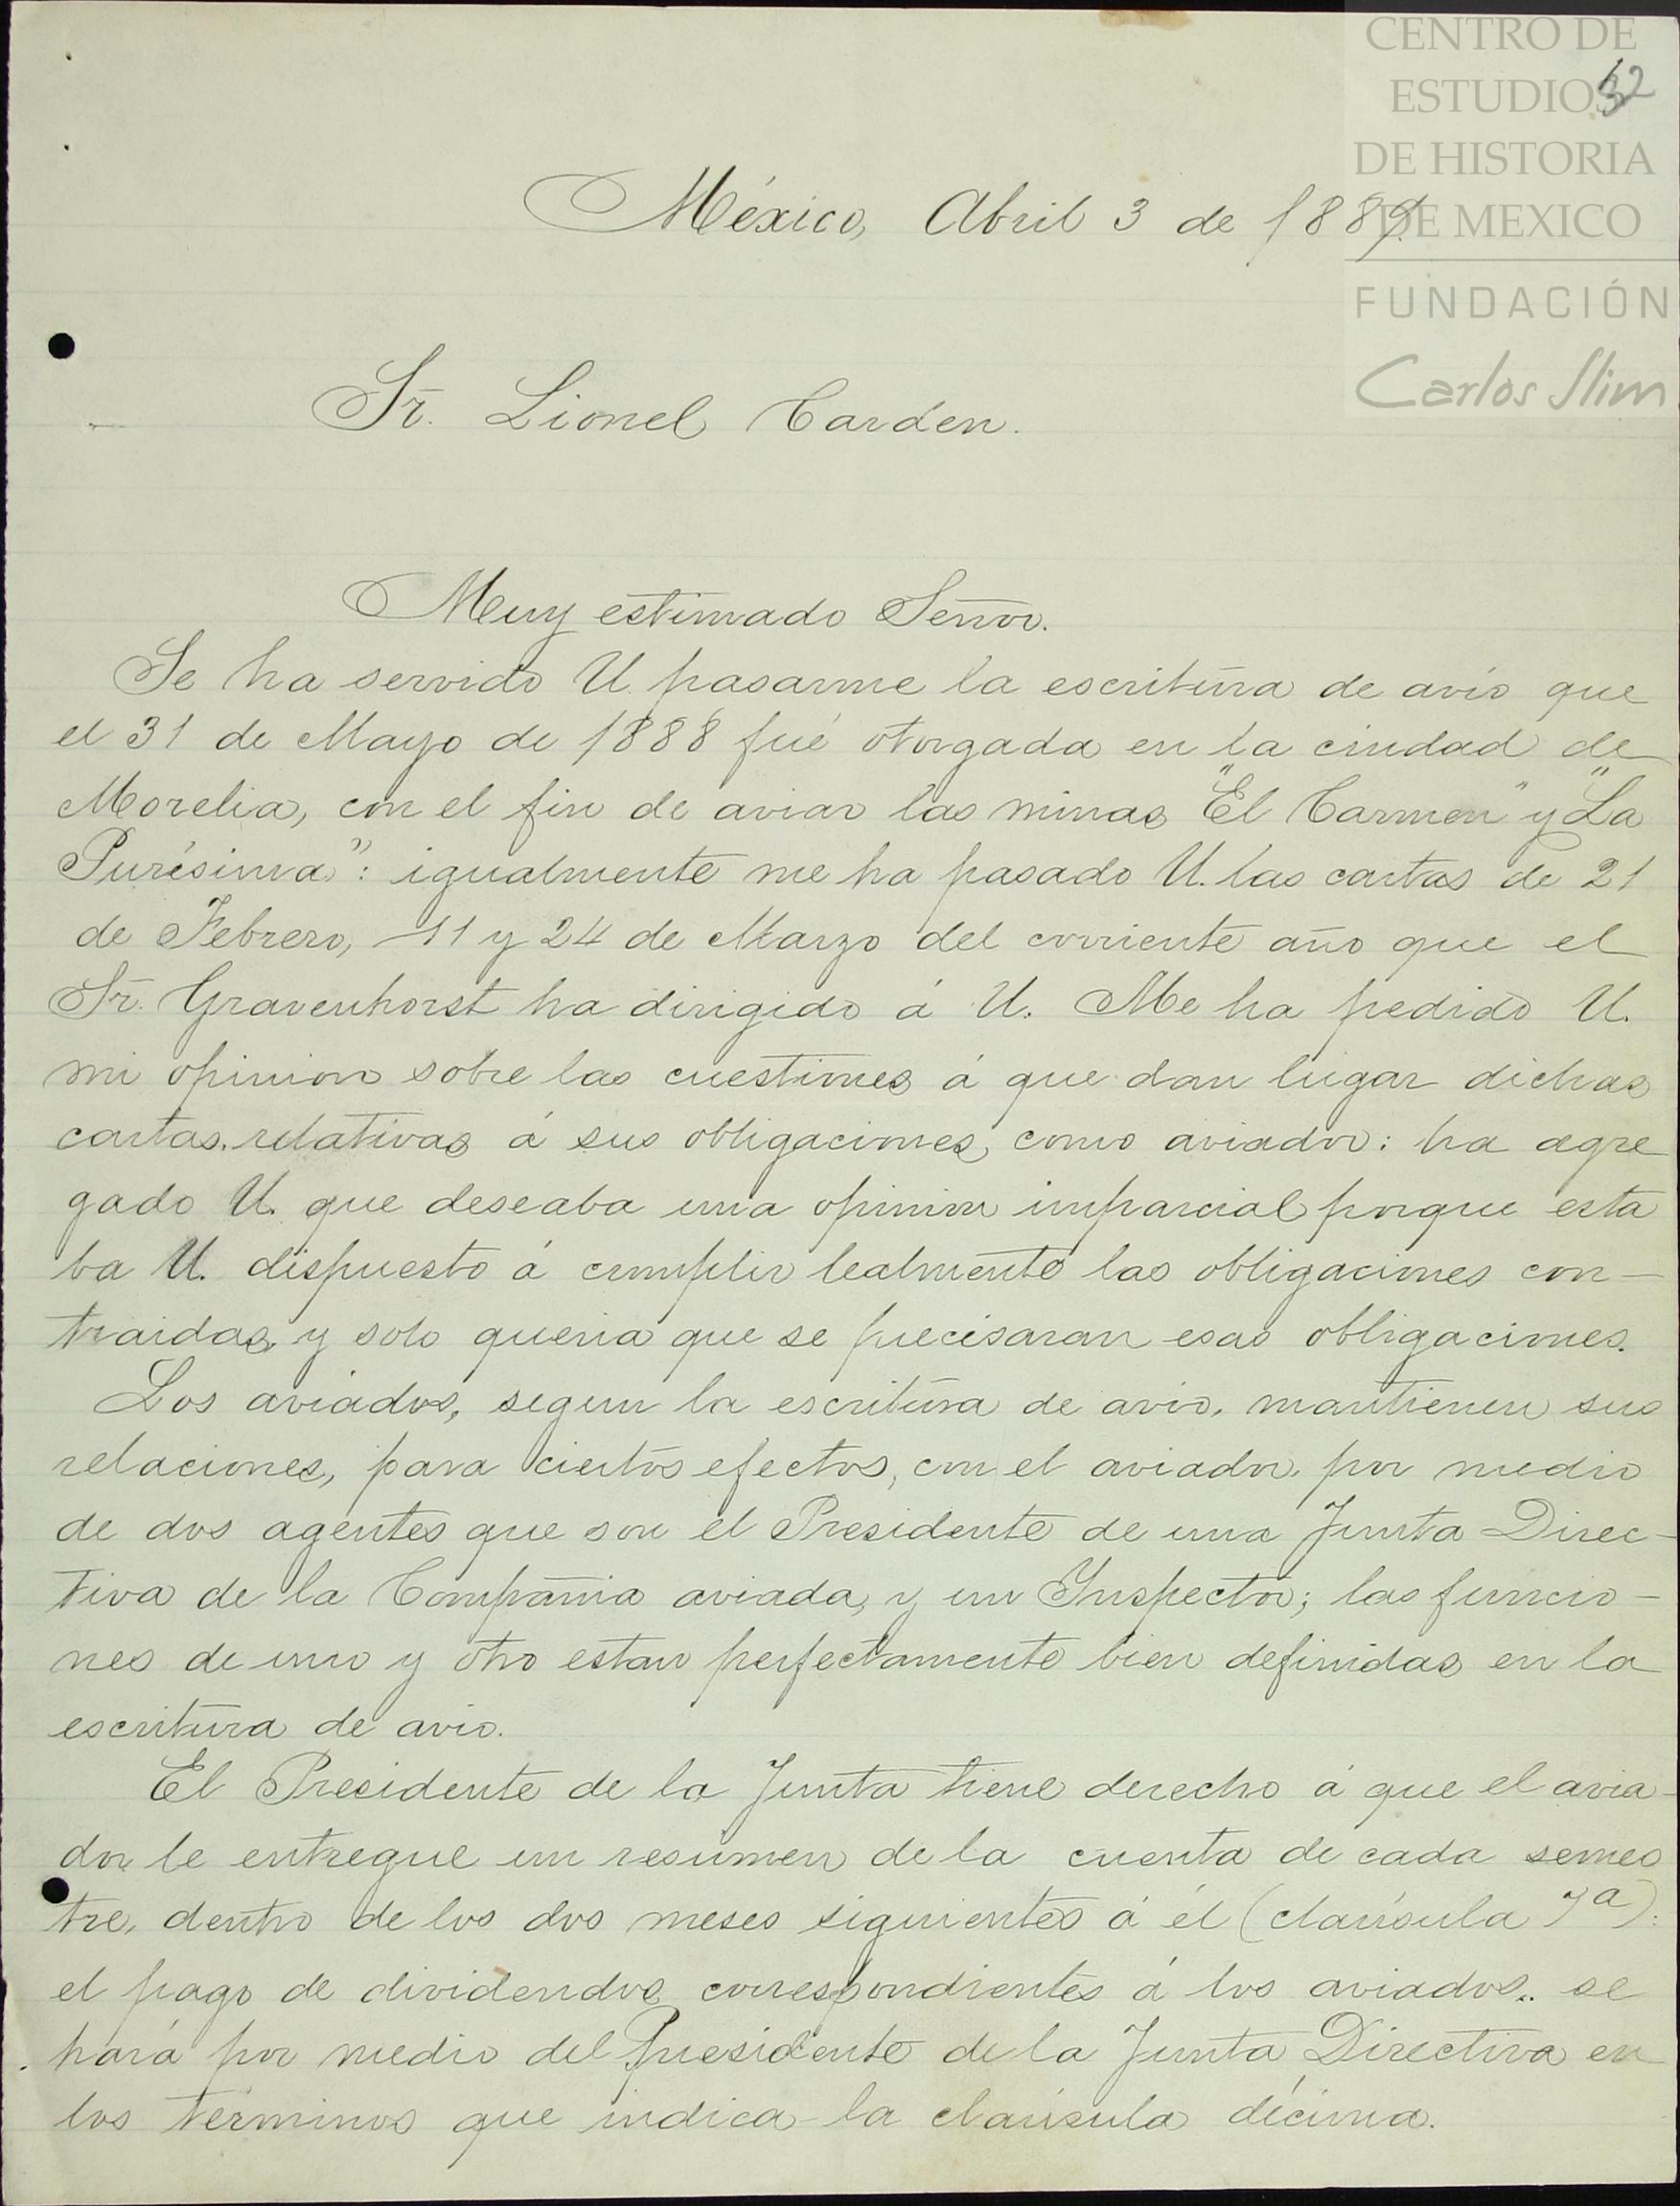 CENTRO DE
ESTUDIOS
DE HISTORIA
DE MEXICO
FUNDACIÓN
Carlos Slim
México, Abril 3 de 1889.
Sr. Lionel Carden.
Muy estimado Señor.
Se ha servido U. pasarme la escritura de avío que
el 31 de Mayo de 1888 fué otorgada en la ciudad de
Morelia, con el fin de aviar las minas "El Carmen" y "La
Purísima": igualmente me ha pasado U. las cartas de 21
de Febrero, 11 y 24 de Marzo del corriente año que el
Sr. Gravenhorst ha dirigido á U. Me ha pedido U.
mi opinion sobre las cuestiones á que dan lugar dichas
cartas relativas á sus obligaciones, como aviador: ha agre
gado U. que deseaba una opinion imparcial porque esta
ba U. dispuesto á cumplir lealmente las obligaciones con-
traidas, y solo queria que se precisaran esas obligaciones.
Los aviados, segun la escritura de avio, mantienen sus
relaciones, para ciertos efectos, con el aviador, por medio
de dos agentes que son el Presidente de una Junta Direc-
tiva de la Compañia aviada, y un Inspector; las funcio-
nes de uno y otro estan perfectamente bien definidas en la
escritura de avio.
El Presidente de la Junta tiene derecho á que el avia-
dor le entregue un resumen de la cuenta de cada semes
tre, dentro de los dos meses siguientes á él (claúsula 7ª):
el pago de dividendos correspondientes á los aviados.. se
hará por medio del Presidente de la Junta Directiva en
los términos que indica la claúsula décima.